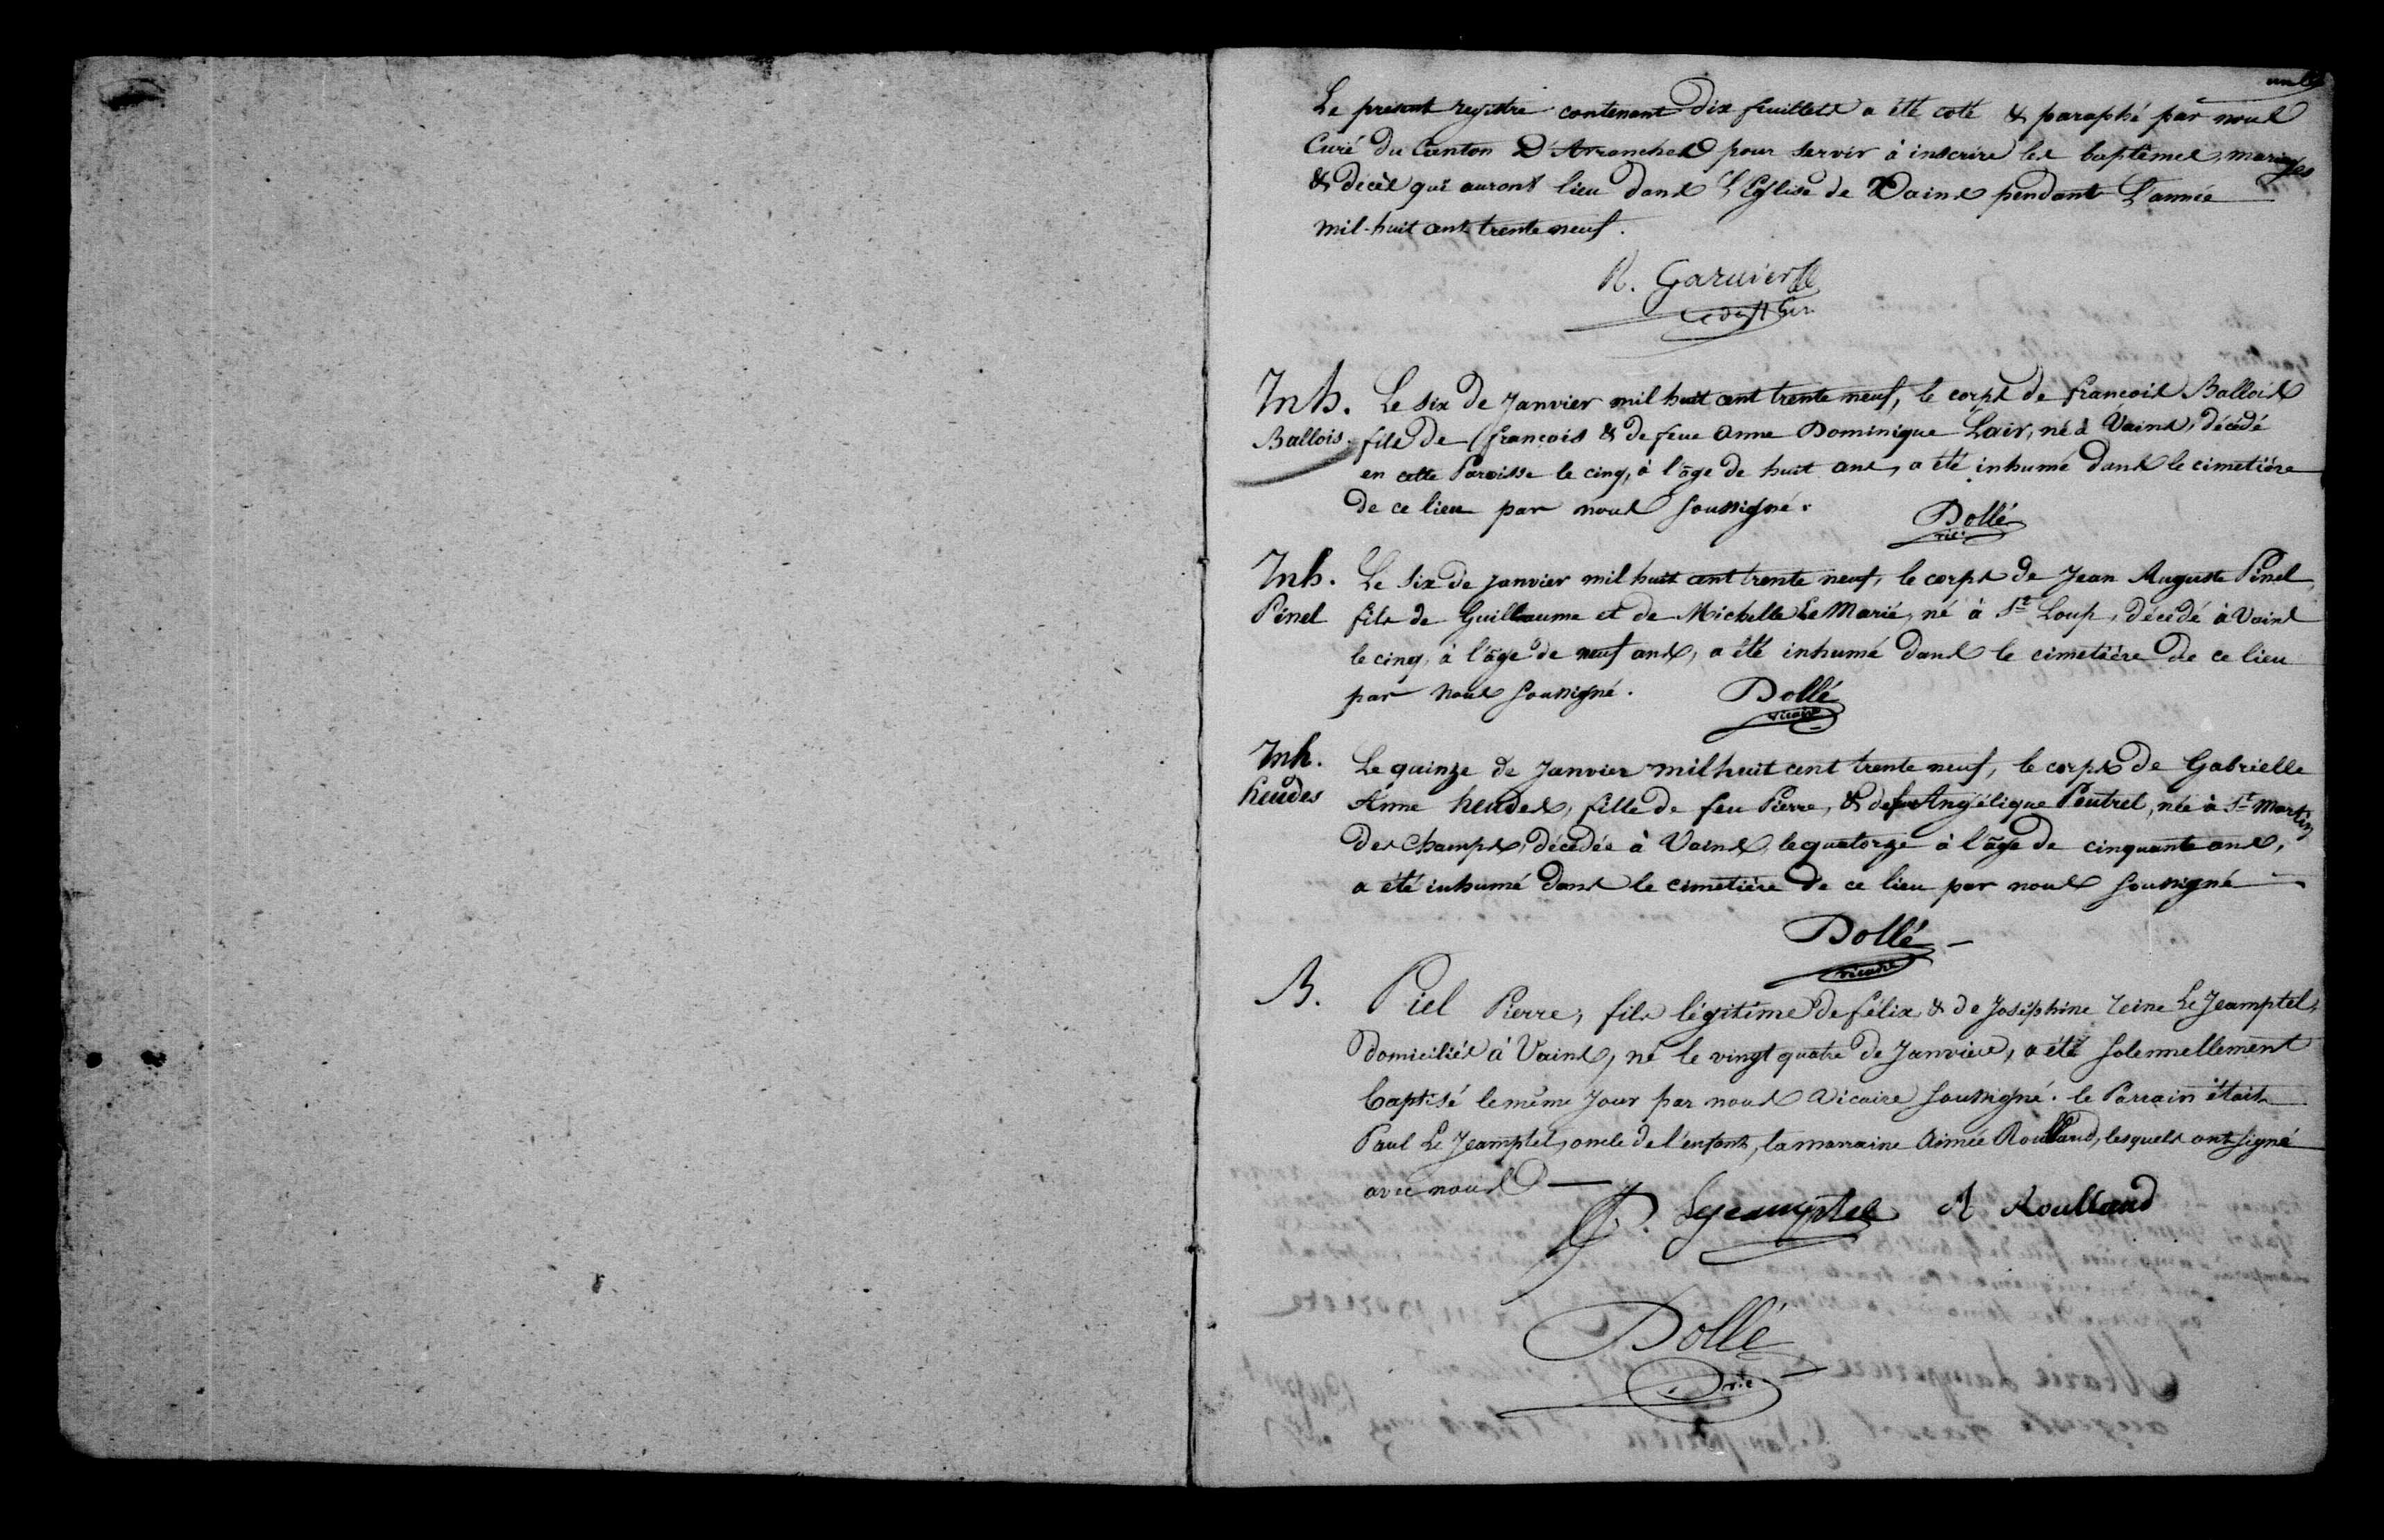 Le present registre contenant dix feuillets a été coté & paraphé par nous
Curé du Canton D'Avranches pour servir à inscrire les baptêmes, mariages
& décès qui auront lieu dans l'Eglise de Vains pendant L'année
mil-huit cent trente neuf.
R. Garnier
Inh. Le six de Janvier mil huit cent trente neuf, le corps de françois Ballois
Ballois fils de françois & de feue Anne Dominique Lair, né à Vains, décédé
en cette Paroisse le cinq, à l'âge de huit ans, a été inhumé dans le cimetiére
de ce lieu par nous soussigné.
Dollé
vic.
Inh. Le six de janvier mil huit cent trente neuf, le corps de Jean Auguste Pinel,
Pinel fils de Guillaume et de Michelle Le Marié, né à St Loup, décédé à Vains
le cinq, à l'âge de neuf ans, a été inhumé dans le cimetiére de ce lieu
par nous soussigné.
Dollé
vicaire
Inh. Le quinze de Janvier mil huit cent trente neuf, le corps de Gabrielle
heudes Anne heudes, fille de feu Pierre, & de feue Angélique Peutrel, née à St Martin
des Champs, décédée à Vains, le quatorze à l'âge de cinquante ans,
a été inhumé dans le cimetiére de ce lieu par nous soussigné
Dollé
vicaire
B. Piel Pierre, fils légitime de félix & de Joséphine reine Le Jeamptel,
domiciliés à Vains, né le vingt quatre de Janvier, a été solennellement
baptisé le même jour par nous Vicaire soussigné. le Parrain était
Paul Le Jeamptel, oncle de l'enfant, la marraine Aimée Roulland, lesquels ont signé
avec nous
P. Lejeamptel A Roulland
Dollé
vic